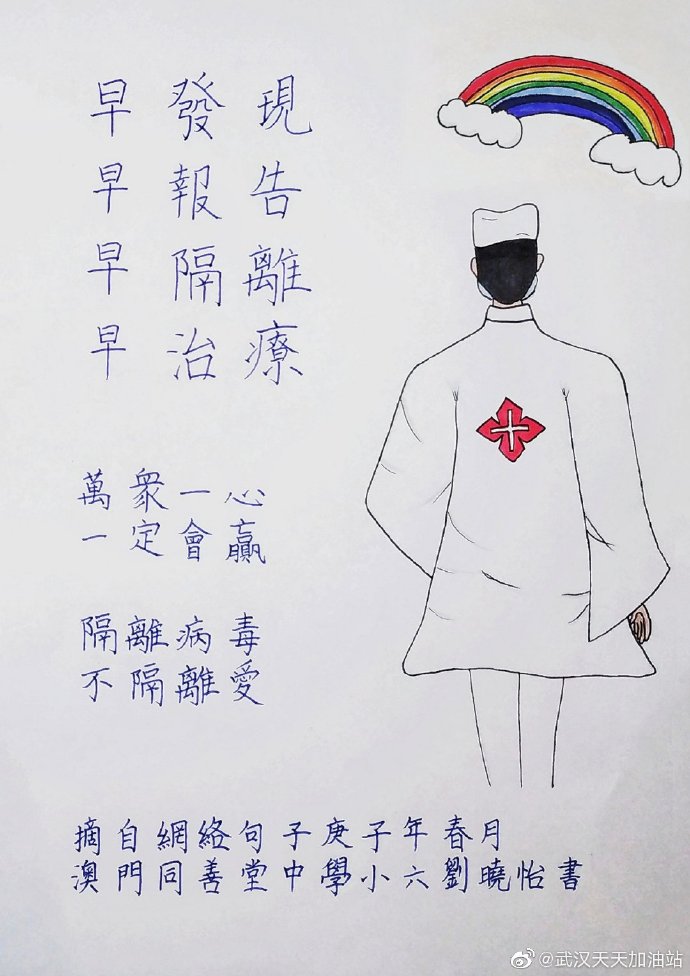 早發現
早報告
早隔離
早治療
萬衆一心
一定會贏
隔離病毒
不隔離愛
摘自網絡句子庚子年春月
澳門同善堂中學小六劉曉怡書
@武汉天天加油站